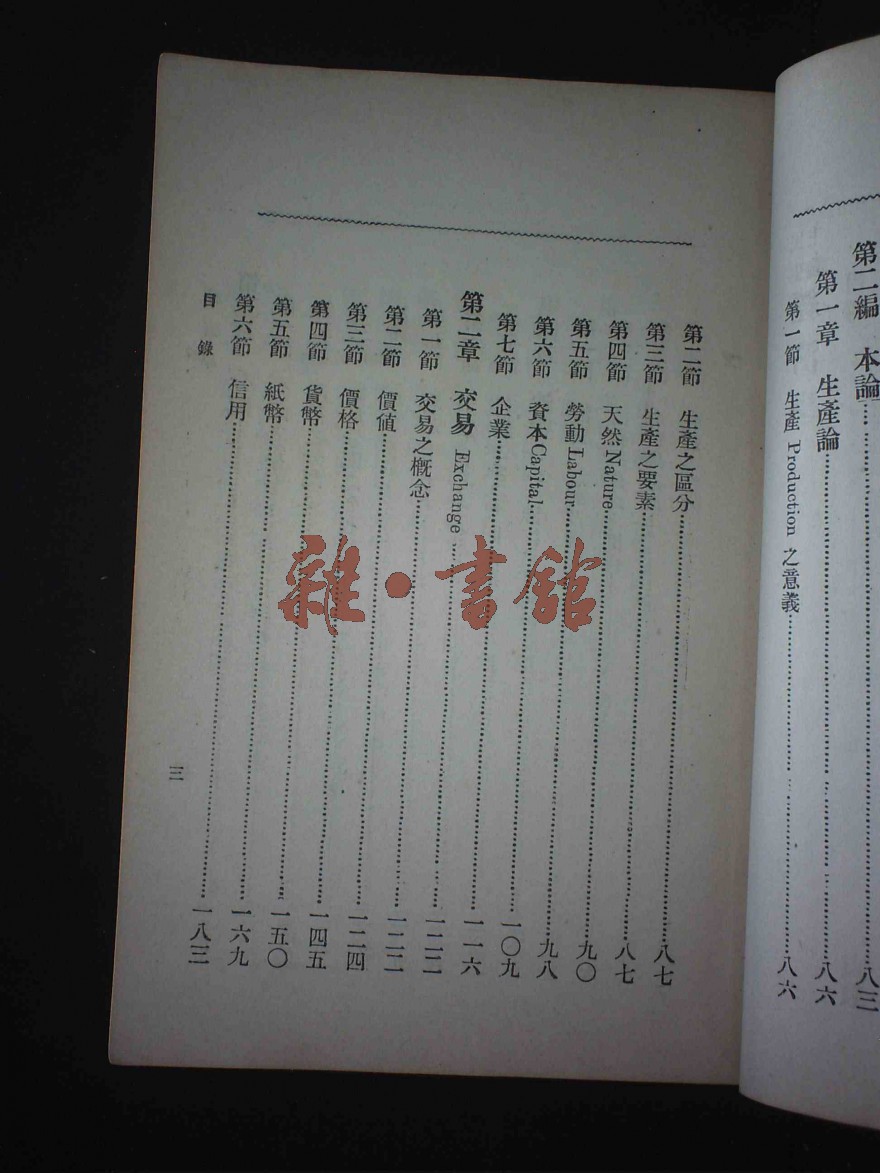 第二編 本論……八三
第一章 生產論……八六
第一節 生產 Production 之意義……八六
第二節 生產之區分……八七
第三節 生產之要素……八七
第四節 天然Nature……九〇
第五節 勞動Labour……九八
第六節 資本Capital……一〇九
第七節 企業……一一六
第二章 交易 Exchange……一二二
第一節 交易之概念……一二二
第二節 價值……一二四
第三節 價格……一四五
第四節 貨幣……一五〇
第五節 紙幣……一六九
第六節 信用……一八三
目錄
三
雜·書館